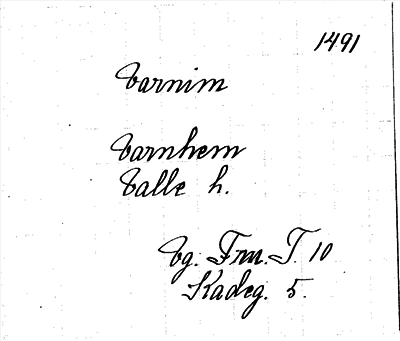 1491
Varnim
Varnhem
Valle h.
Vg. Frn. T. 10
Skadeg. 5.